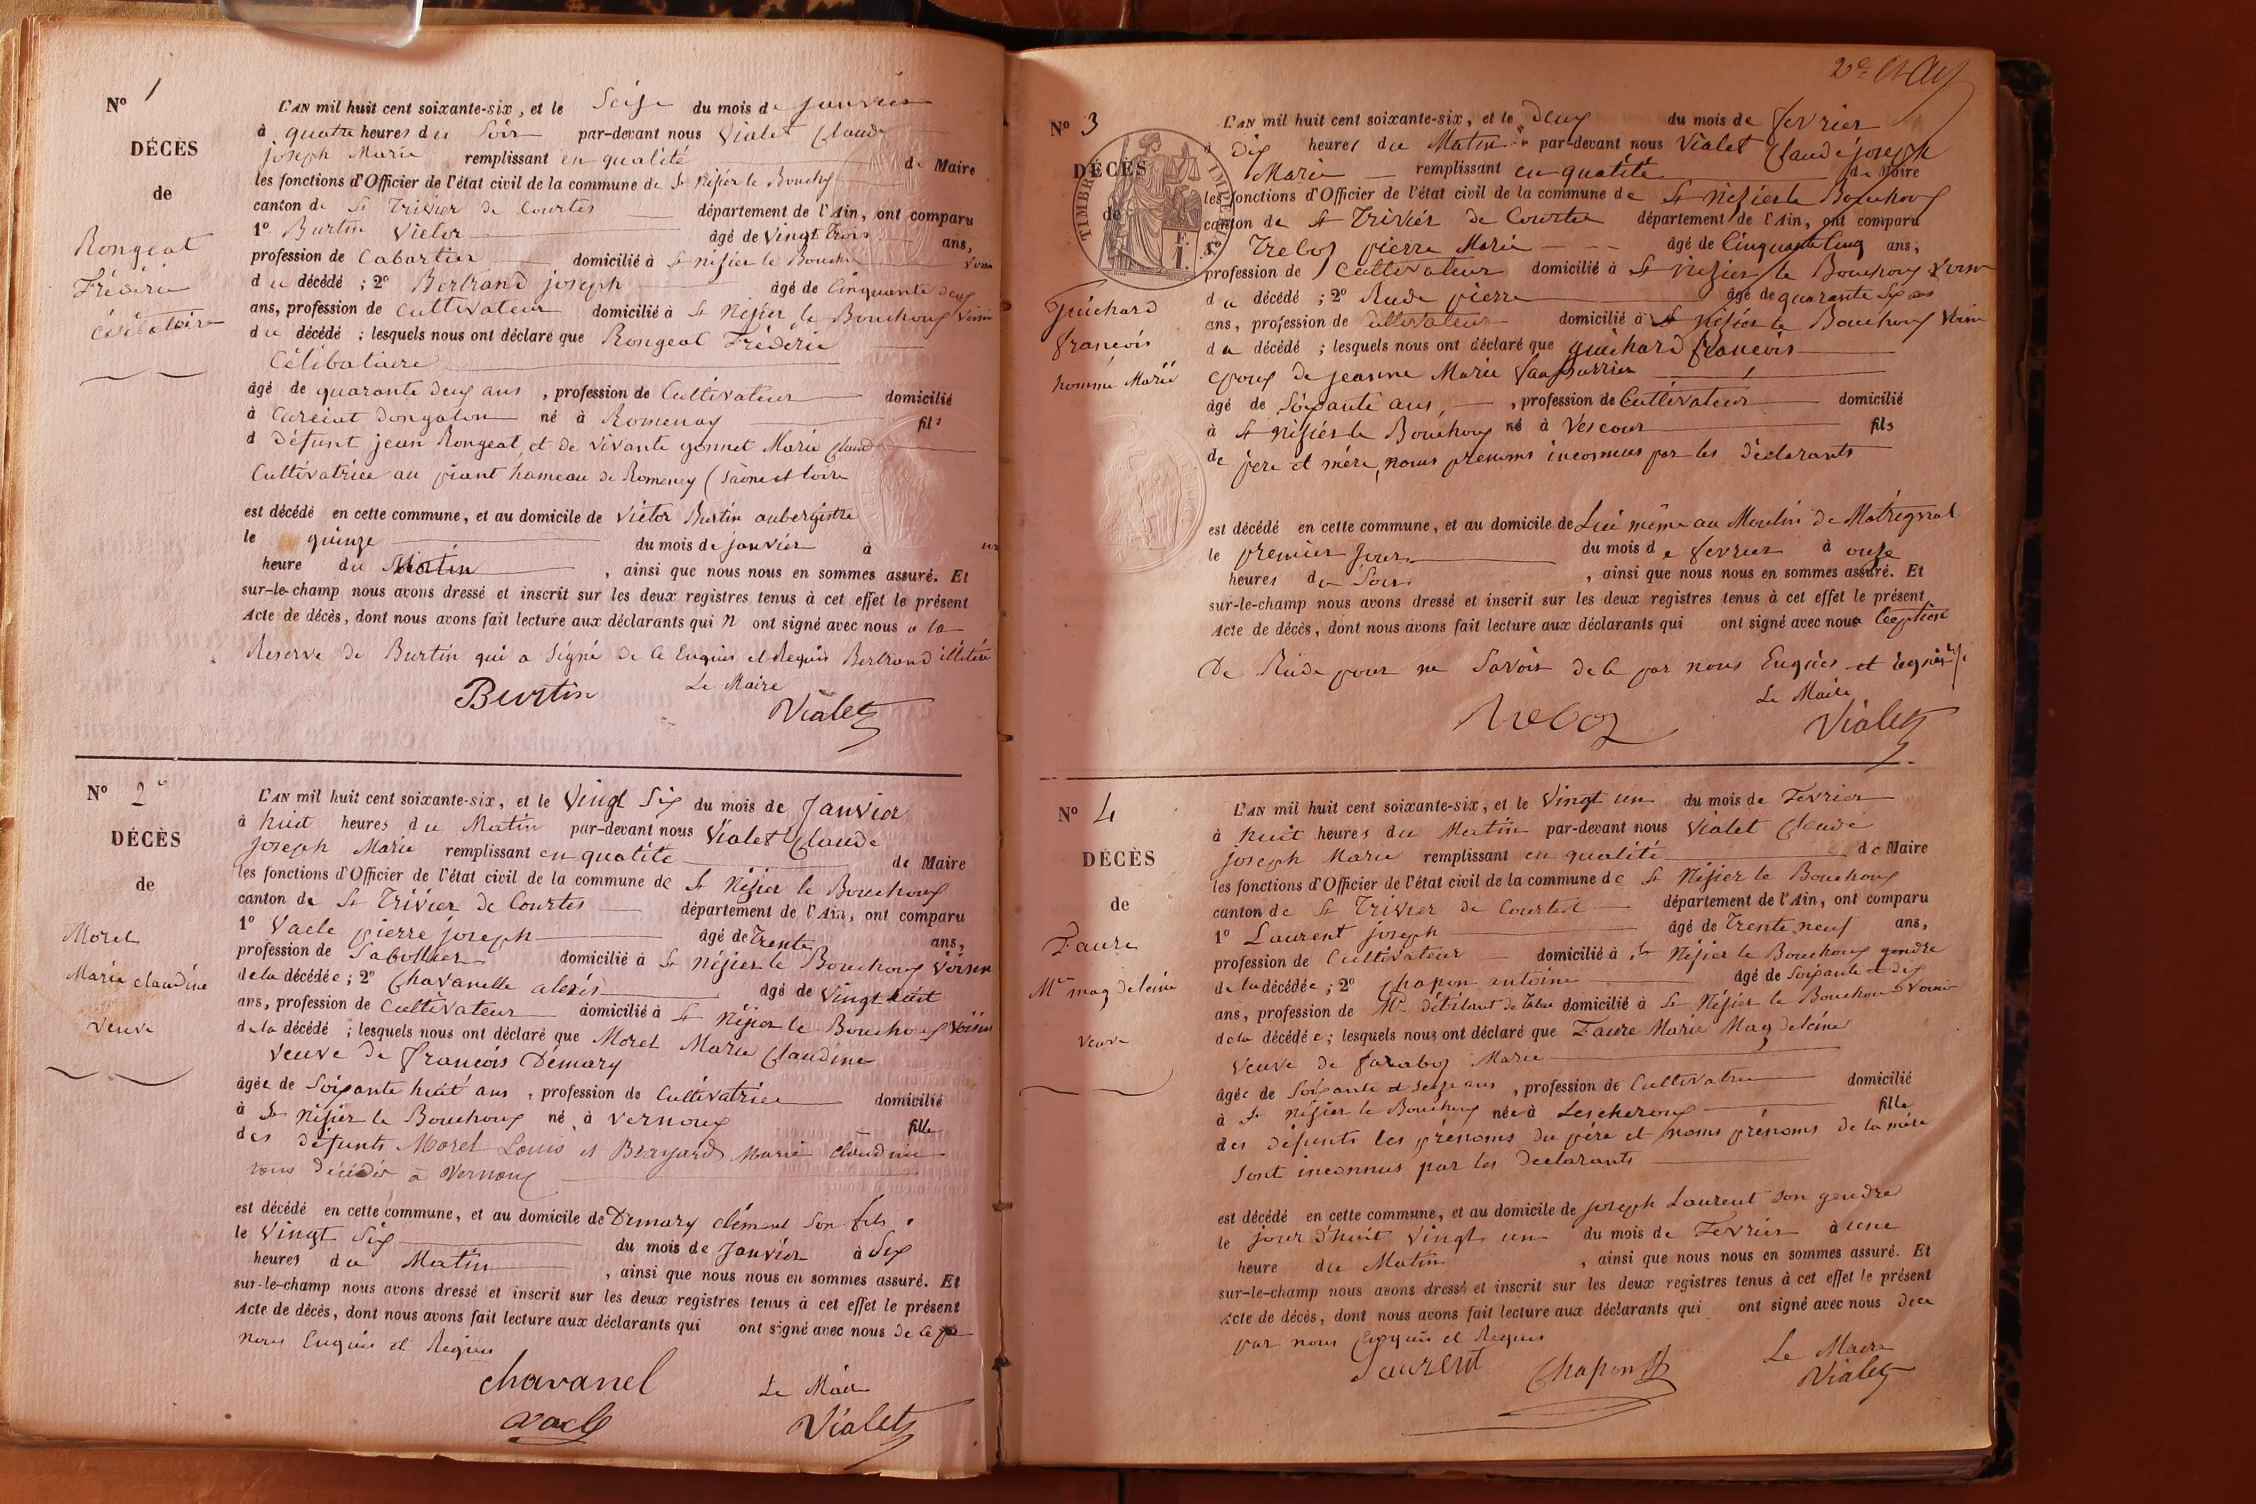 N° 1
DÉCÈS
de
Rongeat
Fréderic
Célibataire
L'AN mil huit cent soixante-six, et le Seize du mois de janvier
à quatre heures du Soir par-devant nous Vialet Claude
joseph Marie remplissant en qualité de Maire
les fonctions d'Officier de l'état civil de la commune de St Nizier le Bouchoux
canton de St Trivier de Courtes département de l'Ain, ont comparu
1° Burtin Victor âgé de Vingt Trois ans,
profession de Cabartier domicilié à St nizier le Bouchoux Voisin
du décédé ; 2° Bertrand joseph âgé de Cinquante deux
ans, profession de Cultivateur domicilié à St Nizier le Bouchoux Voisin
du décédé ; lesquels nous ont déclaré que Rongeat Fréderic
Célibataire
âgé de quarante deux ans , profession de Cultivateur domicilié
à Curciat Dongalon né à Romenay fils
d Défunt jean Rongeat et de vivante gonnet Marie Claud
Cultivatrice au hameau de Romenay (Saône et Loire
est décédé en cette commune, et au domicile de Victor Burtin aubergiste
le quinze du mois de janvier à une
heure du Matin , ainsi que nous nous en sommes assuré. Et
sur-le-champ nous avons dressé et inscrit sur les deux registres tenus à cet effet le présent
Acte de décès, dont nous avons fait lecture aux déclarants qui n ont signé avec nous a la
Reserve de Burtin qui a signé de ce Enquis et Requis Bertrand illétéré
Burtin Le Maire
Vialet
N° 2
DÉCÈS
de
Morel
Marie claudine
Veuve
L'AN mil huit cent soixante-six, et le Vingt Six du mois de Janvier
à huit heures du Matin par-devant nous Vialet Claude
Joseph Marie remplissant en qualité de Maire
les fonctions d'Officier de l'état civil de la commune de St Nizier le Bouchoux
canton de St Trivier de Courtes département de l'Ain, ont comparu
1° Vacle pierre joseph âgé de Trente ans,
profession de Sabottier domicilié à St Nizier le Bouchoux Voisin
de la décédée ; 2° Chavanelle alexis âgé de Vingt huit
ans, profession de Cultivateur domicilié à St Nizier le Bouchoux Voisin
de la décédé ; lesquels nous ont déclaré que Morel Marie Claudine
Veuve de françois Demary
âgée de Soixante huit ans , profession de Cultivatrice domicilié
à St Nizier le Bouchoux né à Vernoux fille
des défunts Morel Louis et Brayard Marie claudine
tous décédés à Vernoux
est décédé en cette commune, et au domicile de Demary clément son fils
le Vingt Six du mois de Janvier à Six
heures du Matin , ainsi que nous nous en sommes assuré. Et
sur-le-champ nous avons dressé et inscrit sur les deux registres tenus à cet effet le présent
Acte de décès, dont nous avons fait lecture aux déclarants qui ont signé avec nous de ce par
nous Enquis et Requis
chavanel Le Maire
vacle Vialet
N° 3
DÉCÈS
de
TIMBRE IMPÉRIAL
Guichard
françois
homme Marié
L'AN mil huit cent soixante-six, et le Deux du mois de fevrier
à Dix heures du Matin par-devant nous Vialet Claude joseph
Marie remplissant en qualité de Maire
les fonctions d'Officier de l'état civil de la commune de St Nizier le Bouchoux
canton de St Trivier de Courtes département de l'Ain, ont comparu
1° Treboz pierre Marie âgé de Cinquante Cinq ans,
profession de Cultivateur domicilié à St Nizier le Bouchoux Voisin
du décédé ; 2° Rude pierre âgé de quarante Six ans
ans, profession de Cultivateur domicilié à St Nizier le Bouchoux Voisin
du décédé ; lesquels nous ont déclaré que guichard françois
époux de jeanne Marie
âgé de Soixante ans, , profession de Cultivateur domicilié
à St Nizier le Bouchoux né à Vescour fils
de père et mère, noms prenoms inconnus par les déclarants
est décédé en cette commune, et au domicile de Lui même au Moulin de
le premier jour du mois de fevrier à onze
heures du Soir , ainsi que nous nous en sommes assuré. Et
sur-le-champ nous avons dressé et inscrit sur les deux registres tenus à cet effet le présent
Acte de décès, dont nous avons fait lecture aux déclarants qui ont signé avec nous a l'exception
De Rude pour ne Savoir de ce par nous Enquis et requis
Le Maire
Treboz Vialet
N° 4
DÉCÈS
de
Faure
Mie magdeleine
Veuve
L'AN mil huit cent soixante-six, et le Vingt un du mois de Fevrier
à huit heures du Matin par-devant nous Vialet Claude
Joseph Marie remplissant en qualité de Maire
les fonctions d'Officier de l'état civil de la commune de St Nizier le Bouchoux
canton de St Trivier de Courtes département de l'Ain, ont comparu
1° Laurent joseph âgé de Trente neuf ans,
profession de Cultivateur domicilié à St Nizier le Bouchoux gendre
de la décédée ; 2° chapon antoine âgé de Soixante et dix
ans, profession de Md débitant de Tabac domicilié à St Nizier le Bouchoux Voisin
de la décédée ; lesquels nous ont déclaré que Faure Marie Magdeleine
Veuve de Marie
âgée de Soixante et seize ans , profession de Cultivatrice domicilié
à St Nizier le Bouchoux née à Lescheroux fille
des défunts les prénoms du père et noms prénoms de la mère
Sont inconnus par les declarants
est décédé en cette commune, et au domicile de joseph Laurent son gendre
le jour d'huit Vingt un du mois de Fevrier à une
heure du Matin , ainsi que nous nous en sommes assuré. Et
sur-le-champ nous avons dressé et inscrit sur les deux registres tenus à cet effet le présent
Acte de décès, dont nous avons fait lecture aux déclarants qui ont signé avec nous de ce
par nous Enquis et Requis
Laurent Chapon Le Maire
Vialet